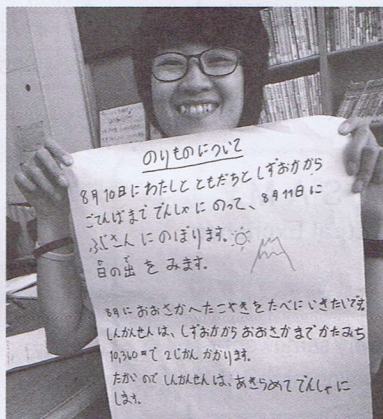 のりものについて
8月10日にわたしと ともだちと しずおかから
ごてんばまで でんしゃ にのって、8月11日に
ふじさん にのぼります。
日の出 を みます。
8月に おおさかへたこやきをたべにいきたいです。
しんかんせんは、しずおかから おおさかまでかたみち
10,360円で 2じかん かかります。
たかい ので しんかんせんは、あきらめて でんしゃに
します。